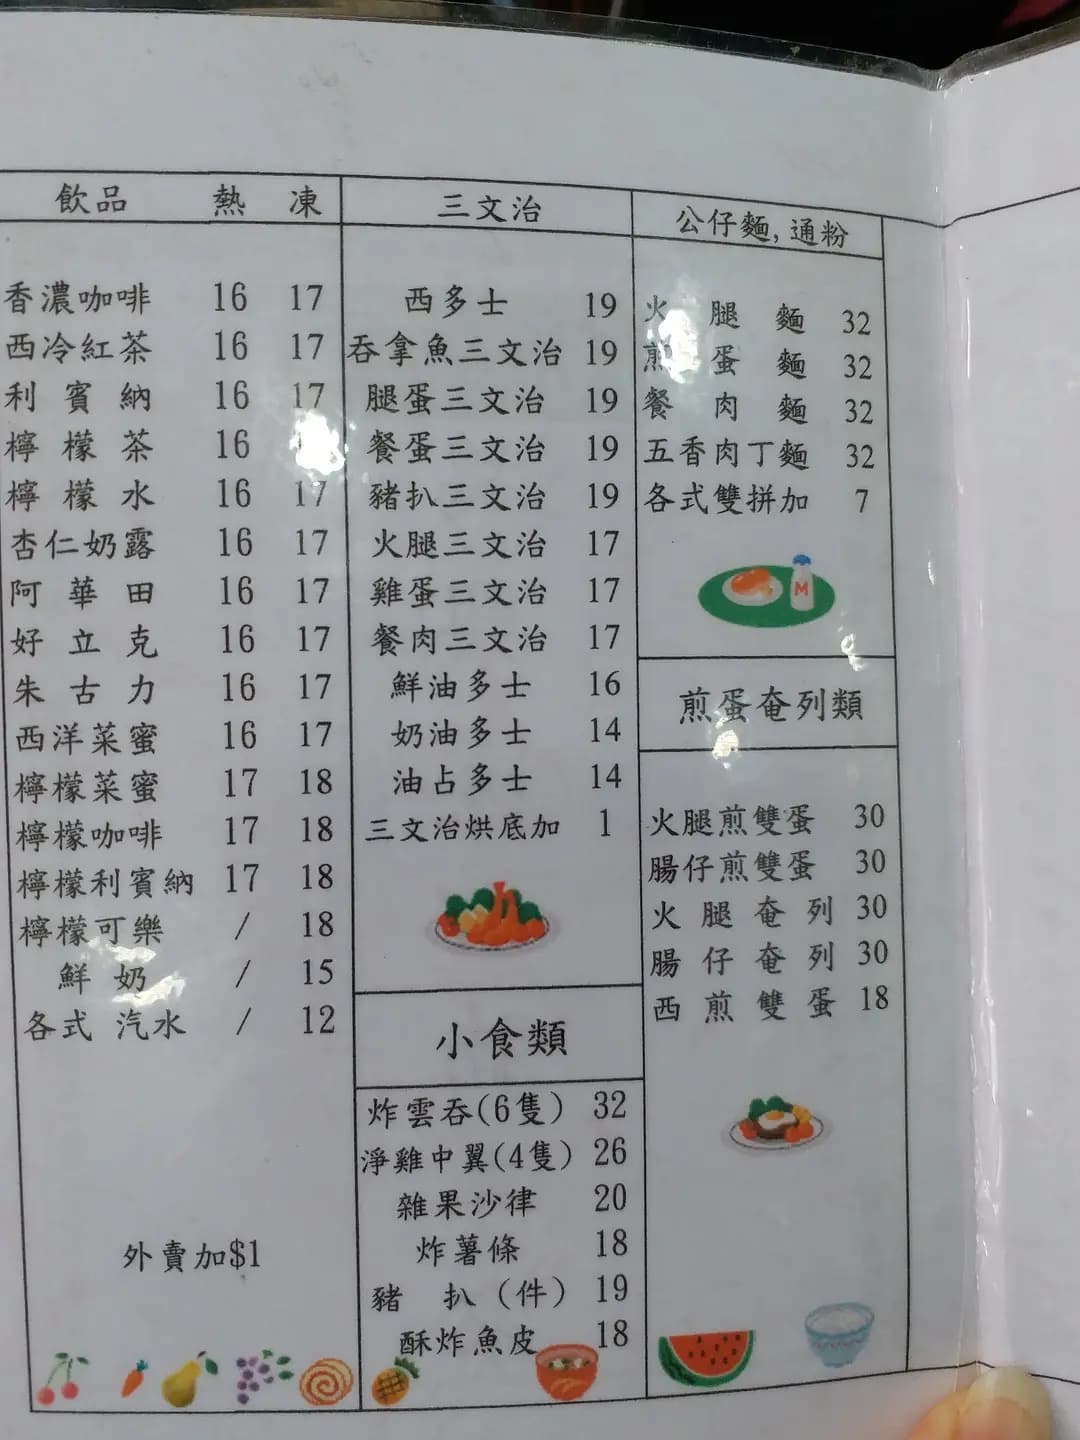 飲品 熱 凍
香濃咖啡 16 17
西冷紅茶 16 17
利賓納 16 17
檸檬茶 16
檸檬水 16 17
杏仁奶露 16 17
阿華田 16 17
好立克 16 17
朱古力 16 17
西洋菜蜜 16 17
檸檬菜蜜 17 18
檸檬咖啡 17 18
檸檬利賓納 17 18
檸檬可樂 / 18
鮮奶 / 15
各式 汽水 / 12
外賣加$1
三文治
西多士 19
吞拿魚三文治 19
腿蛋三文治 19
餐蛋三文治 19
豬扒三文治 19
火腿三文治 17
雞蛋三文治 17
餐肉三文治 17
鮮油多士 16
奶油多士 14
油占多士 14
三文治烘底加 1
小食類
炸雲吞(6隻) 32
淨雞中翼(4隻) 26
雜果沙律 20
炸薯條 18
豬扒(件) 19
酥炸魚皮 18
公仔麵,通粉
火腿麵 32
煎蛋麵 32
餐肉麵 32
五香肉丁麵 32
各式雙拼加 7
M
煎蛋奄列類
火腿煎雙蛋 30
腸仔煎雙蛋 30
火腿奄列 30
腸仔奄列 30
西煎雙蛋 18